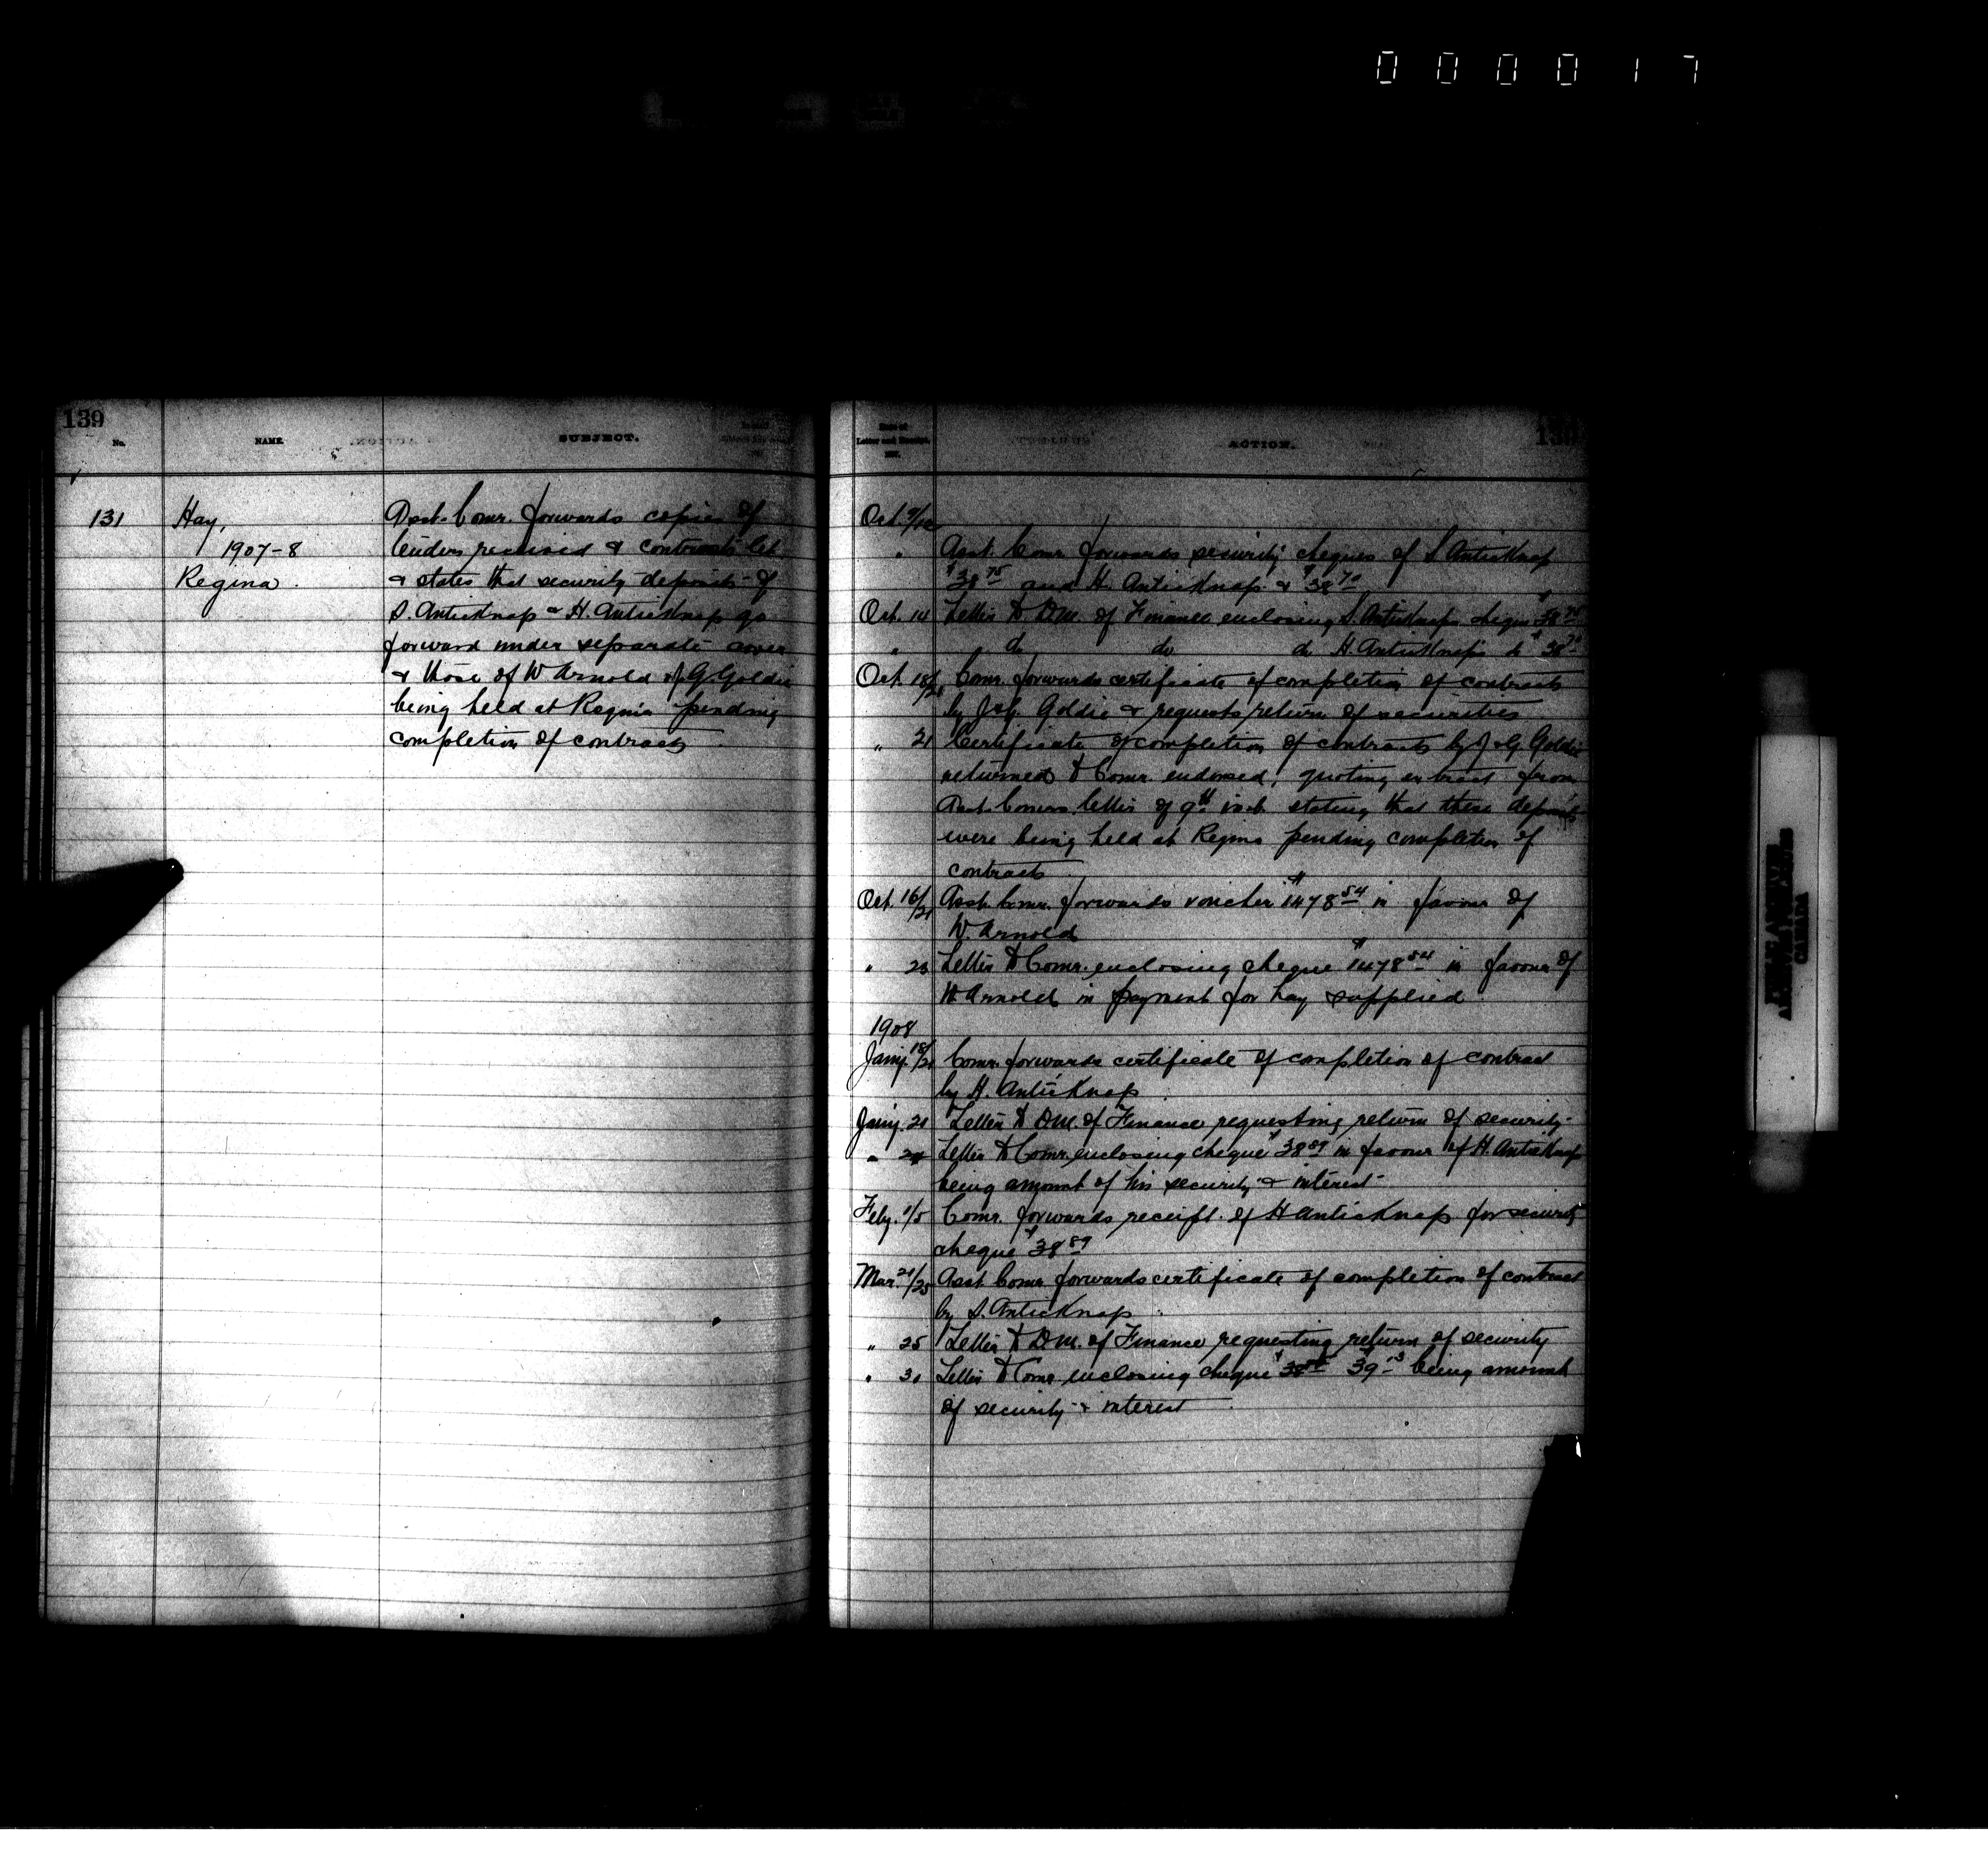 000017
139
No.
NAME.
SUBJECT.
131
Hay,
1907-8
Regina.
Asst. Comr. forwards copies of
tenders received & contracts let
& states that security deposits of
S. Anticknap & H. Anticknap go
forward under separate cover
& those of W Arnold & J G Goldie
being held at Regina pending
completion of contracts
Date of
Letter and Receipt.
ACTION.
139
Oct 9/12
" Asst. Comr. forwards security cheques of S Anticknap
$38 75 and H. Anticknap & $38 70
Oct. 14 Letter to D.M. of Finance enclosing S. Anticknaps cheque $38 75
" do do do H. Anticknaps do $38 70
Oct. 18/21 Comr. forwards certificate of completion of contracts
by J & G. Goldie & requests return of securities
" 21 Certificate of completion of contracts by J & G. Goldie
returned to Comr. endorsed, quoting extract from
Asst. Comrs letter of 9th inst. stating that these deposits
were being held at Regina pending completion of
contracts
Oct. 16/21 Asst. Comr. forwards voucher $1478 54 in favour of
W. Arnold
" 23 Letter to Comr. enclosing cheque $1478 54 in favour of
W Arnold in payment for hay supplied
1908
Jany. 18/21 Comr. forwards certificate of completion of contract
by H. Anticknap
Jany. 21 Letter to D.M. of Finance requesting return of security
" 24 Letter to Comr. enclosing cheque $38 89 in favour of H. Anticknap
being amount of his security & interest
Feby. 1/5 Comr. forwards receipt of H Anticknap for security
cheque $38 89
Mar. 21/25 Asst. Comr. forwards certificate of completion of contract
by S. Anticknap
" 25 Letter to D.M. of Finance requesting return of security
" 30 Letter to Comr enclosing cheque $39 13 being amount
of security & interest
PUBLIC ARCHIVES
ARCHIVES PUBLIQUES
CANADA